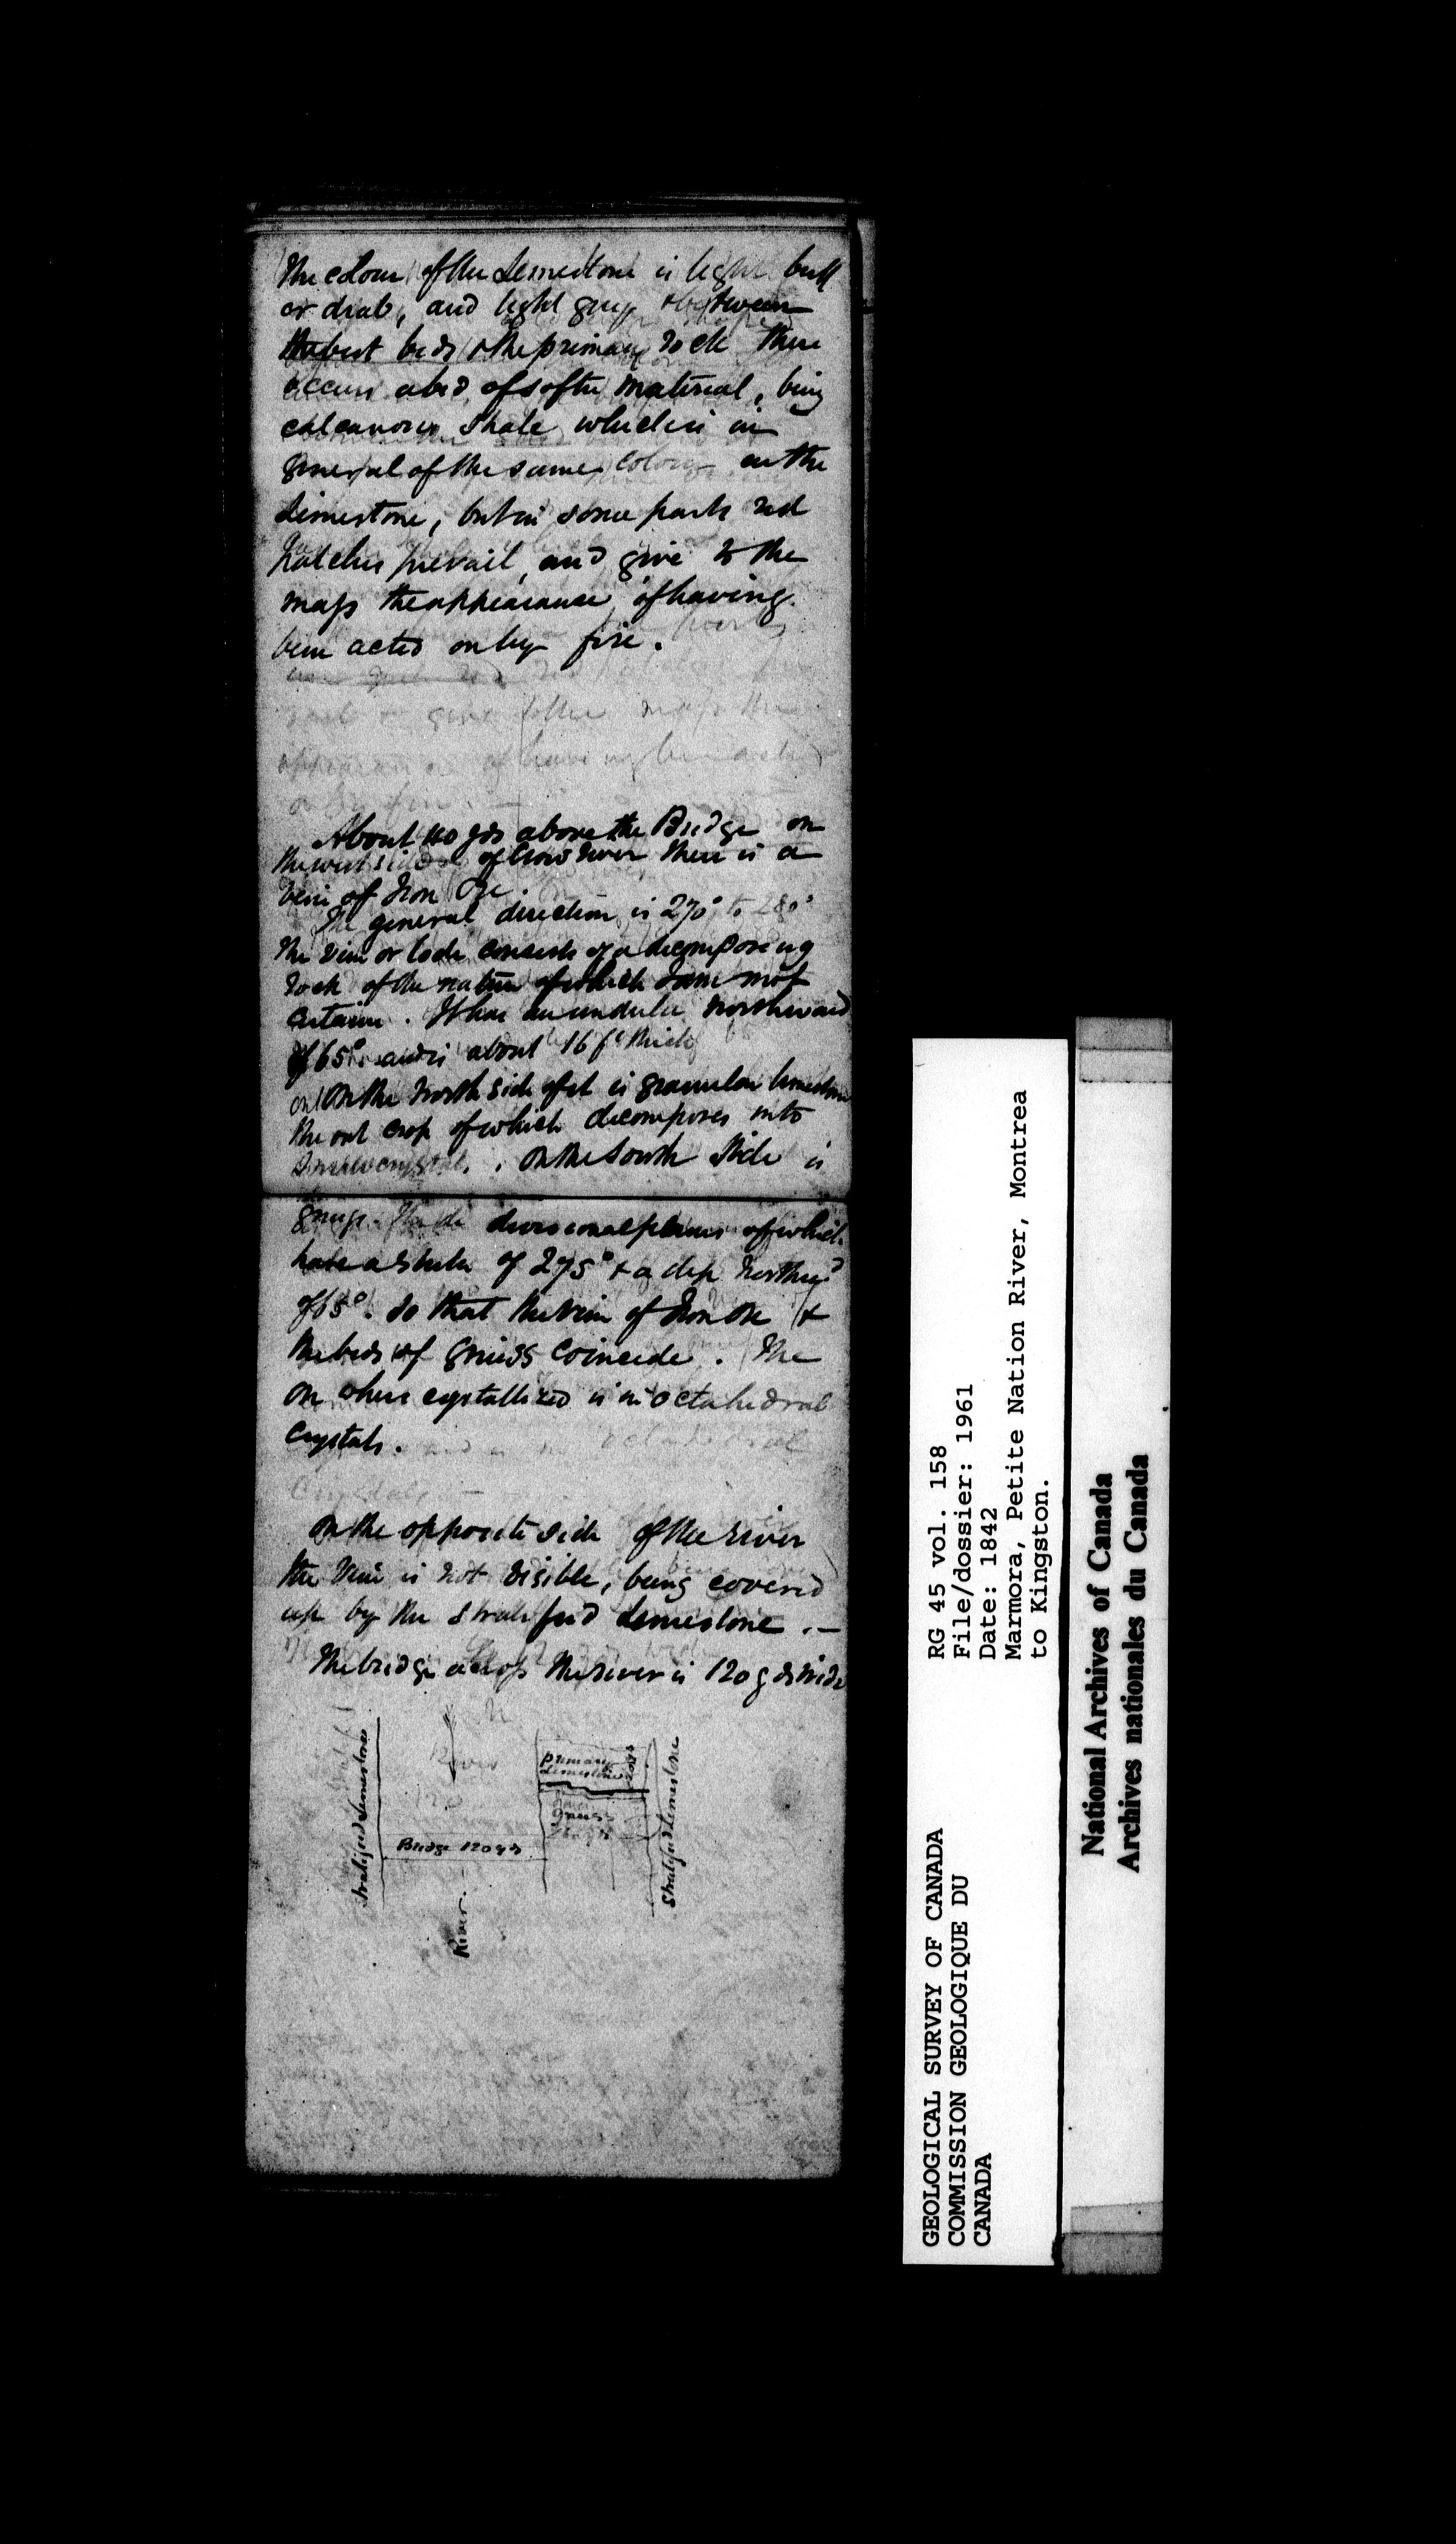 The colour of the Limestone is light buff
or drab, and light grey & between
the best beds & the primary rock there
occurs a bed of softer material, being
calcareous shale which is in
general of the same colour as the
Limestone, but in some parts red
patches prevail, and give to the
mass the appearance of having
been acted on by fire.
About 110 yds above the Bridge on
the west side of Crow River there is a
vein of Iron Ore.
The general direction is 270° to 280°
The vein or lode consists of a decomposing
rock of the nature of which I am not
certain. It has an underlie northward
of 65° and is about 16 ft thick
On the North side of it is granular limestone
the out crop of which decomposes into
crystals. On the South side is
gneiss. The divisional planes of which
have a strike of 275° & a dip northwd
of 65°. So that the vein of Iron Ore &
the beds of gneiss coincide. The
Ore where crystallized is in octahedral
crystals.
On the opposite side of the river
the vein is not visible, being covered
up by the stratified Limestone.—
The bridge across the river is 120 yds wide
N
River
Stratified Limestone
Primary
Limestone
gneiss
Bridge 120 yds
Stratified Limestone
River.
RG 45 vol. 158
File/dossier: 1961
Date: 1842
Marmora, Petite Nation River, Montrea
to Kingston.
GEOLOGICAL SURVEY OF CANADA
COMMISSION GEOLOGIQUE DU
CANADA
National Archives of Canada
Archives nationales du Canada